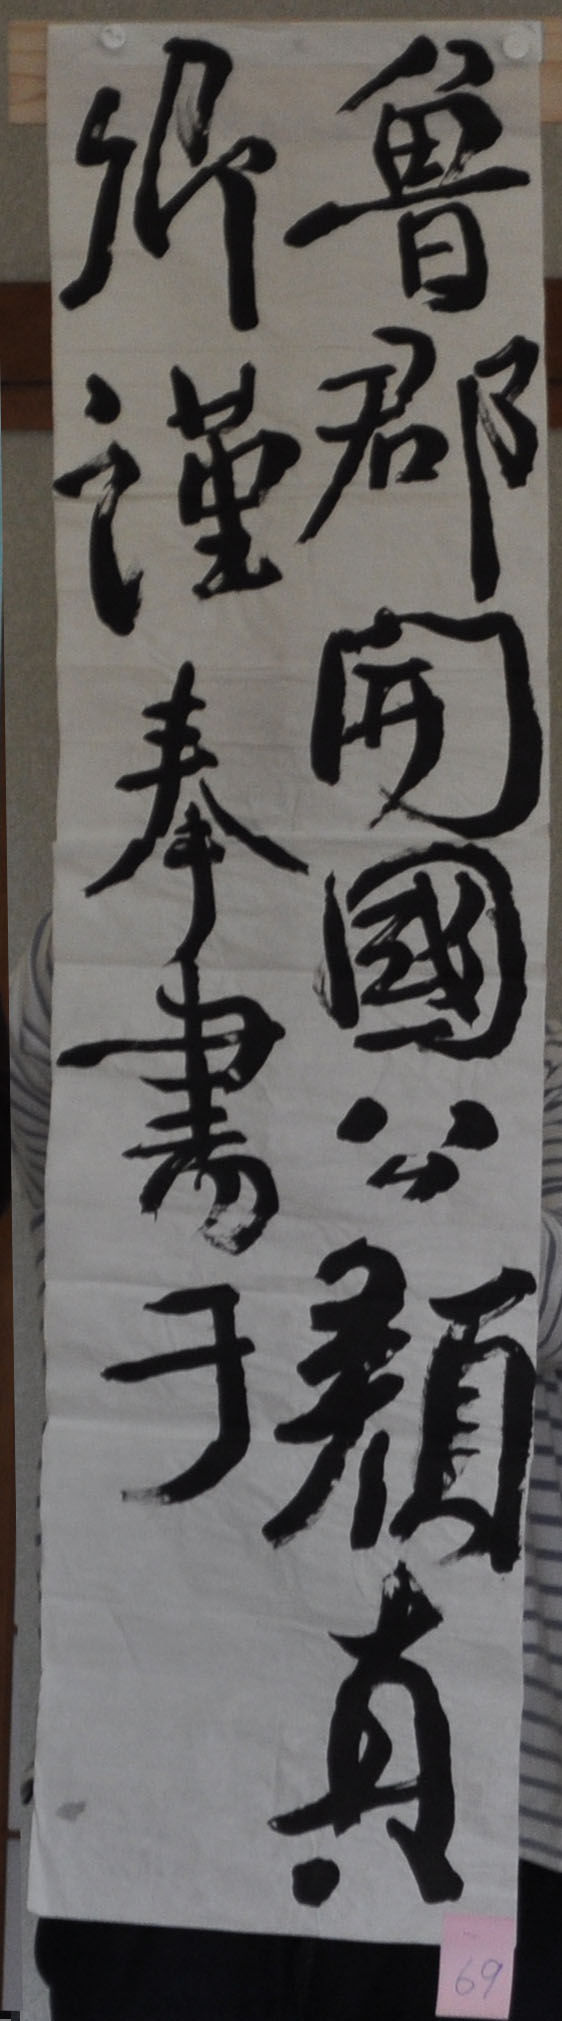 魯郡開國公顔真
卿謹奉書于
69